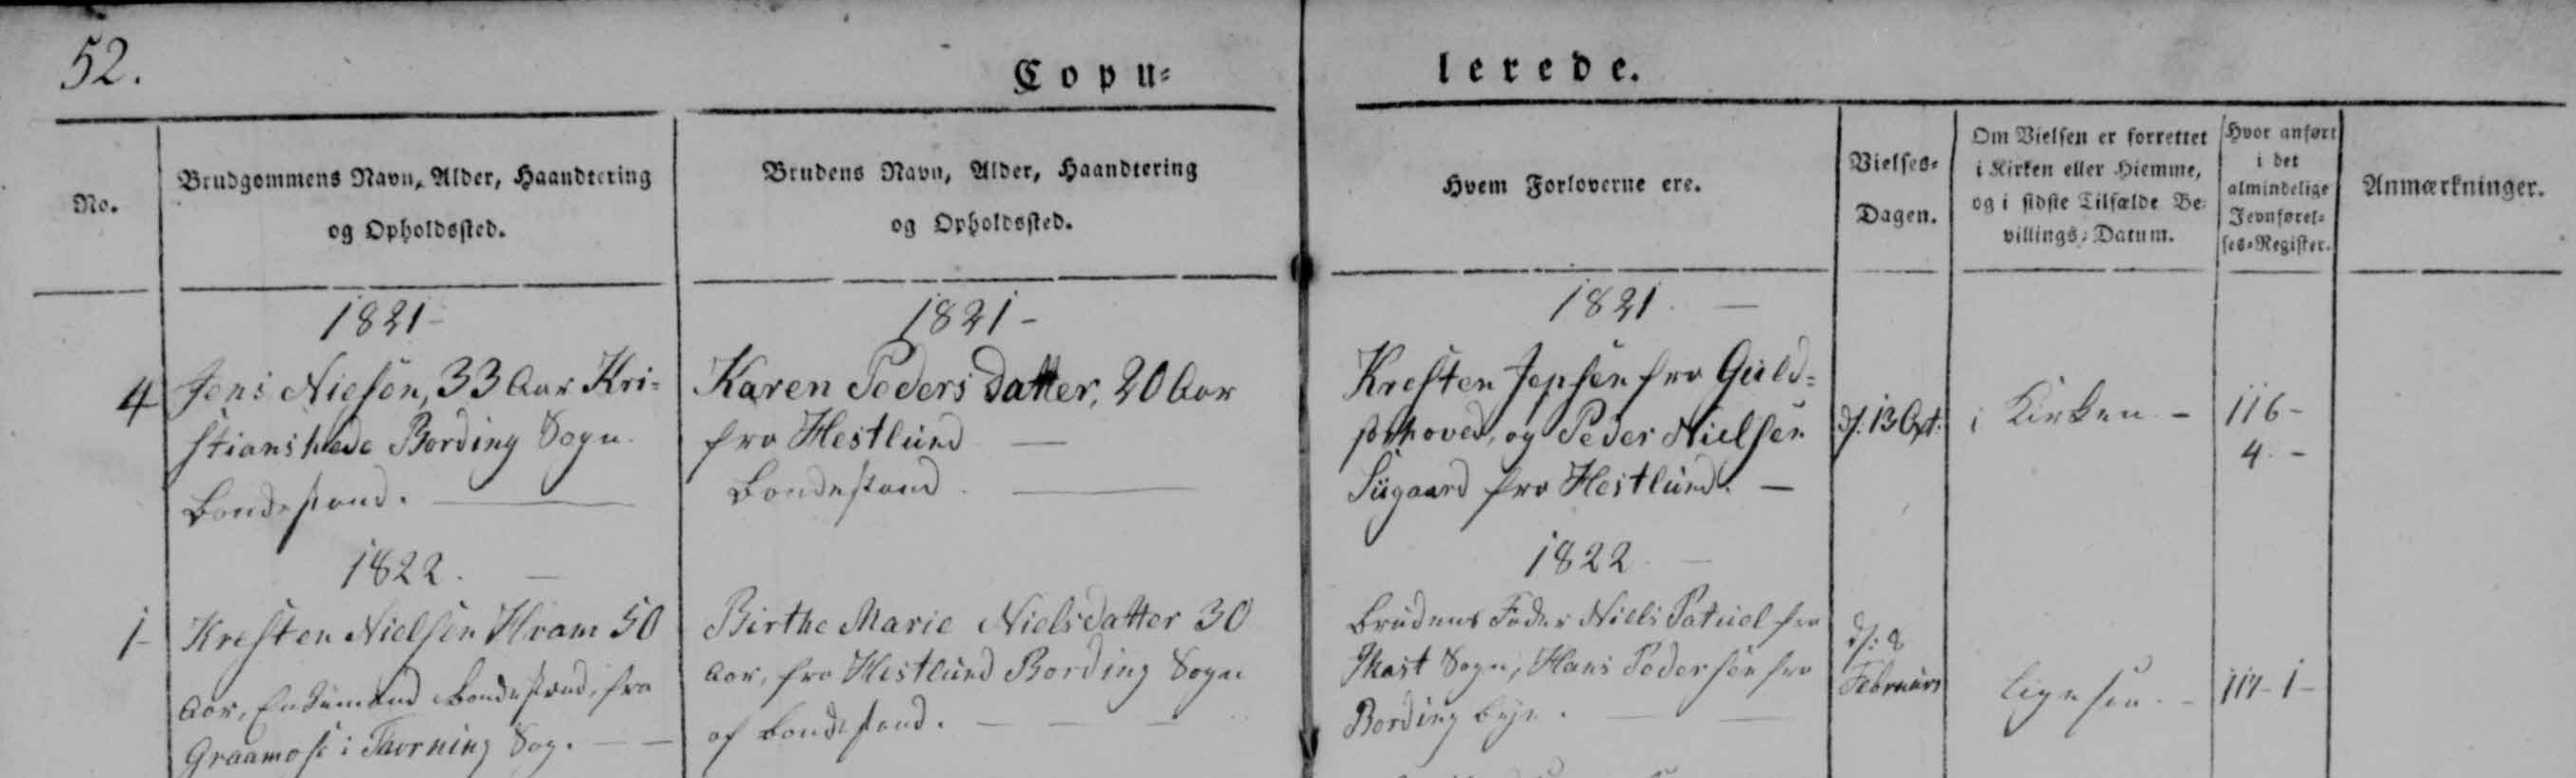 52.
Copu=
lerede.
No.
Brudgommens Navn, Alder, Haandtering
og Opholdssted.
Brudens Navn, Alder, Haandtering
og Opholdssted.
Hvem Forloverne ere.
Vielses=
Dagen.
Om Vielsen er forrettet
i Kirken eller Hiemme,
og i sidste Tilfælde Be=
villings=Datum.
Hvor anført
i det
almindelige
Jevnførel=
ses=Register.
Anmærkninger.
1821-
4
Jens Nielsen, 33 Aar Kri=
stianshede Bording Sogn
Bondestand.
1821-
Karen Peders Datter, 20 Aar
fra Hestlund
Bondestand.
1821.
Kresten Jepsen fra Guld=
forhoved, og Peder Nielsen
Siigaard fra Hestlund.
d: 13 Oct:
i Kirken -
116-
4.-
1822.
1-
Kresten Nielsen Hram 50
Aar, Enkemand Bondestand, fra
Graamose i Thorning Sog.
Birthe Marie Nielsdatter 30
Aar, fra Hestlund Bording Sogn
af Bondestand.
1822
Brudens Fader Niels fra
Ikast Sogn, Hans Pedersen fra
Bording Bye.
d: 8
Februari
ligesaa. -
117-1-